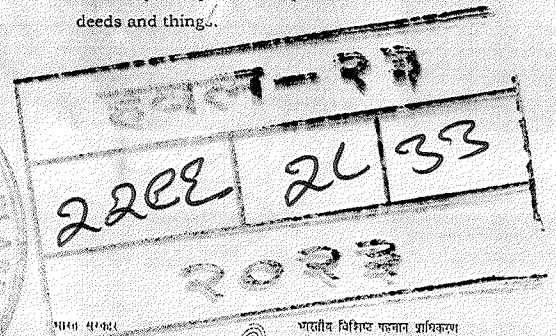 deeds and things.
हवल - २३
२२९६ २८ ३३
२०२३
भारत सरकार भारतीय विशिष्ट पहचान प्राधिकरण